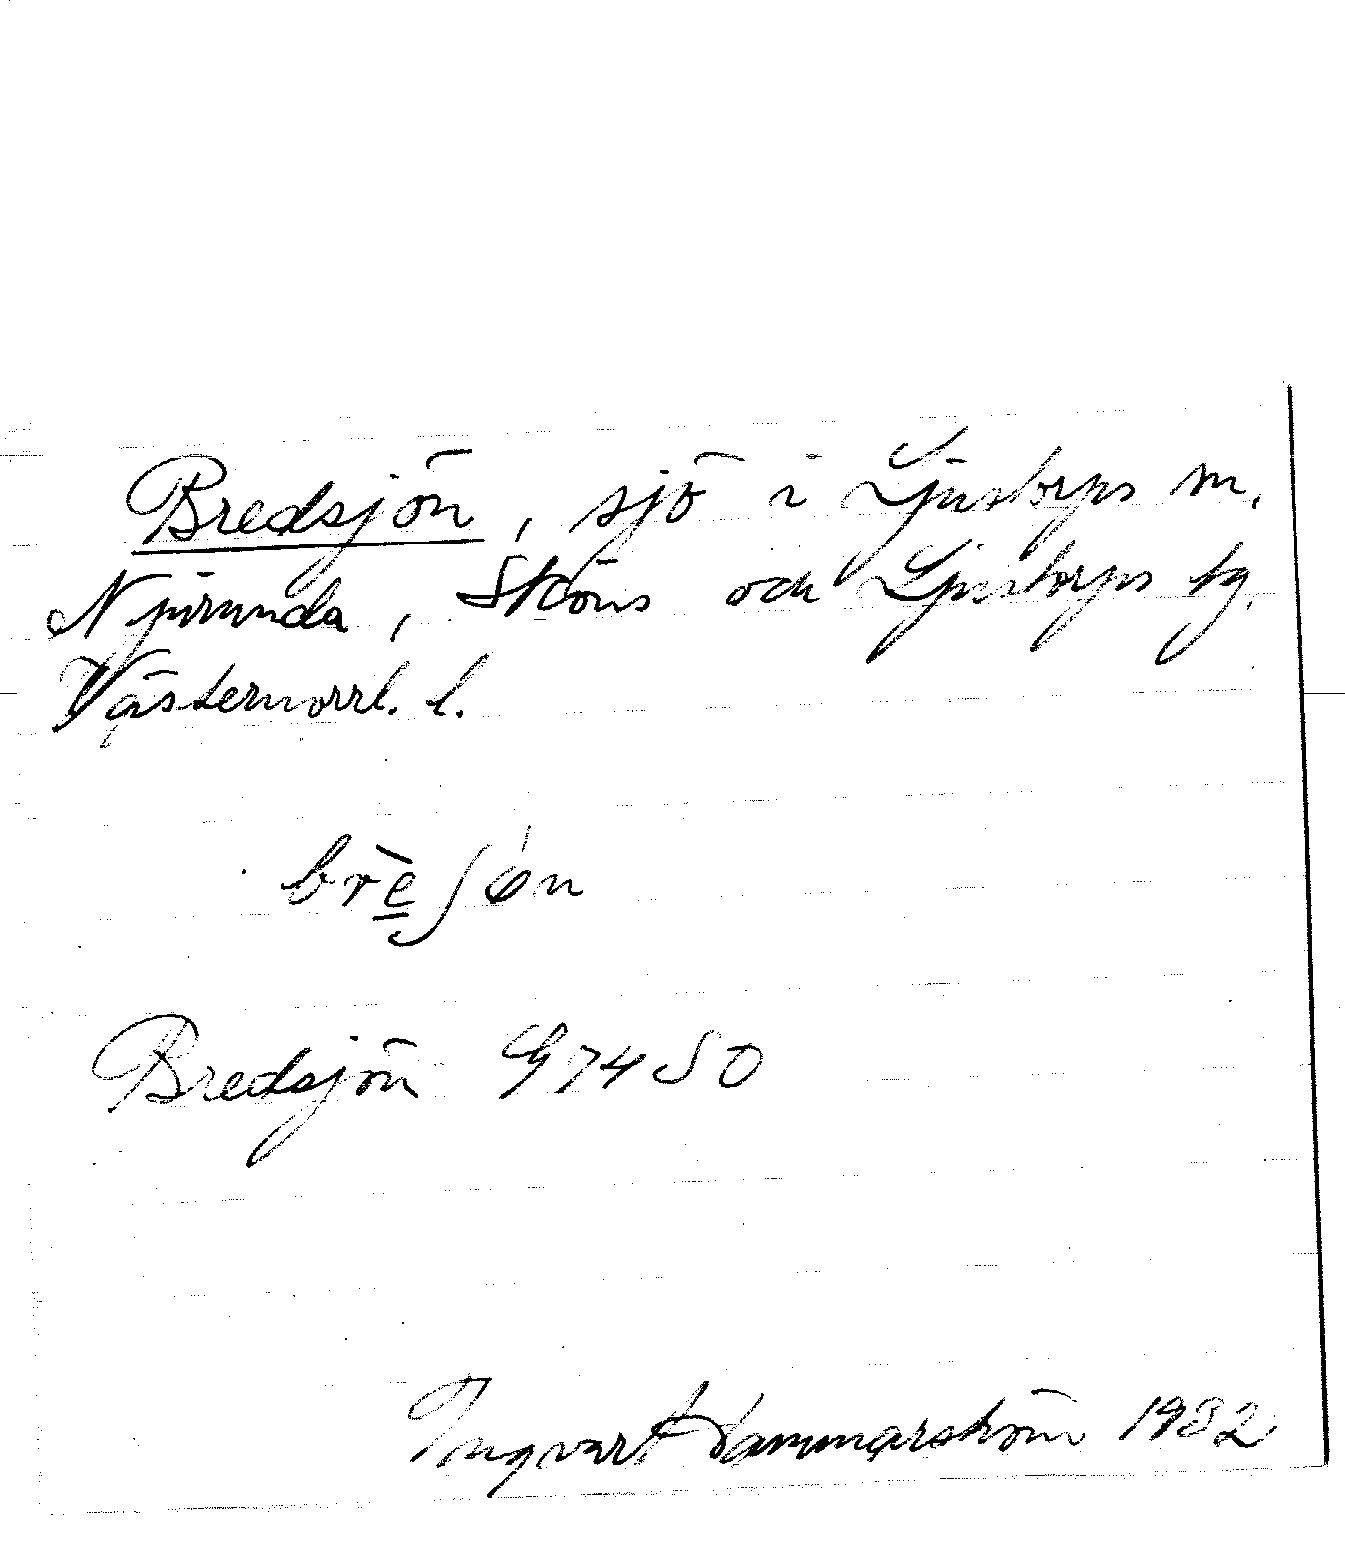 Bredsjön, sjö i Ljustorps sn,
Njurunda, Sköns och Ljustorps tg.
Västernorrl. l.
brèʃón
Bredsjön G 7450
Ingvart Hammarström 1932